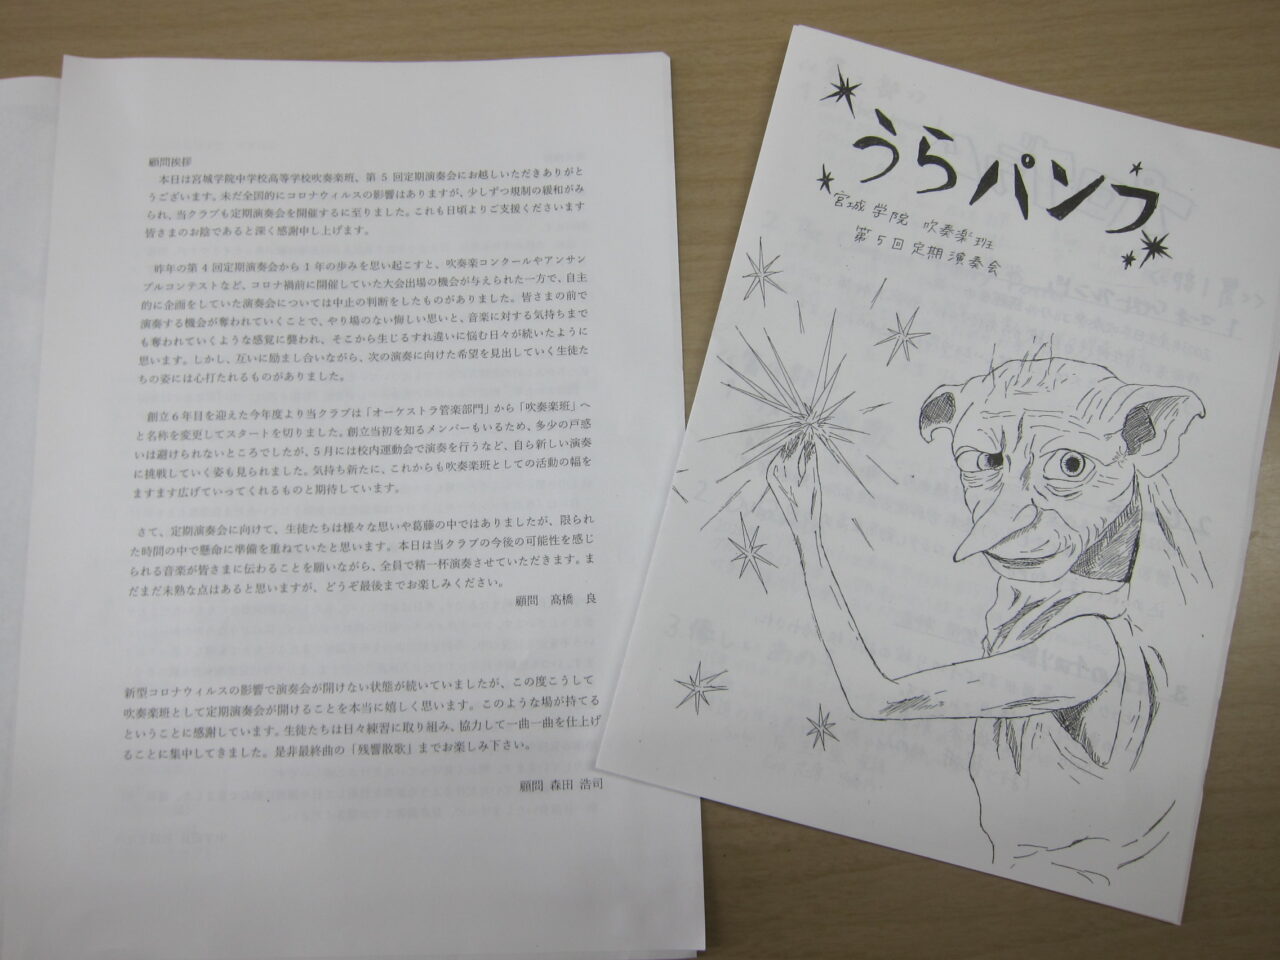 顧問挨拶
本日は宮城学院中学校高等学校吹奏楽班、第5回定期演奏会にお越しいただきありがと
うございます。未だ全国的にコロナウィルスの影響はありますが、少しずつ規制の緩和がみ
られ、当クラブも定期演奏会を開催するに至りました。これも日頃よりご支援くださいます
皆さまのお陰であると深く感謝申し上げます。
昨年の第4回定期演奏会から1年の歩みを思い起こすと、吹奏楽コンクールやアンサン
ブルコンテストなど、コロナ禍前に開催していた大会出場の機会が与えられた一方で、自主
的に企画をしていた演奏会については中止の判断をしたものがありました。皆さまの前で
演奏する機会が奪われていくことで、やり場のない悔しい思いと、音楽に対する気持ちまで
も奪われていくような感覚に襲われ、そこから生じるすれ違いに悩む日々が続いたように
思います。しかし、互いに励まし合いながら、次の演奏に向けた希望を見出していく生徒た
ちの姿には心打たれるものがありました。
創立6年目を迎えた今年度より当クラブは「オーケストラ管楽部門」から「吹奏楽班」へ
と名称を変更してスタートを切りました。創立当初を知るメンバーもいるため、多少の戸惑
いは避けられないところでしたが、5月には校内運動会で演奏を行うなど、自ら新しい演奏
に挑戦していく姿も見られました。気持ち新たに、これからも吹奏楽班としての活動の幅を
ますます広げていってくれるものと期待しています。
さて、定期演奏会に向けて、生徒たちは様々な思いや葛藤の中ではありましたが、限られ
た時間の中で懸命に準備を重ねていたと思います。本日は当クラブの今後の可能性を感じ
られる音楽が皆さまに伝わることを願いながら、全員で精一杯演奏させていただきます。ま
だまだ未熟な点はあると思いますが、どうぞ最後までお楽しみください。
顧問 髙橋 良
新型コロナウィルスの影響で演奏会が開けない状態が続いていましたが、この度こうして
吹奏楽班として定期演奏会が開けることを本当に嬉しく思います。このような場が持てる
ということに感謝しています。生徒たちは日々練習に取り組み、協力して一曲一曲を仕上げ
ることに集中してきました。是非最終曲の「残響散歌」までお楽しみ下さい。
顧問 森田 浩司
うらパンフ
宮城学院 吹奏楽班
第5回定期演奏会